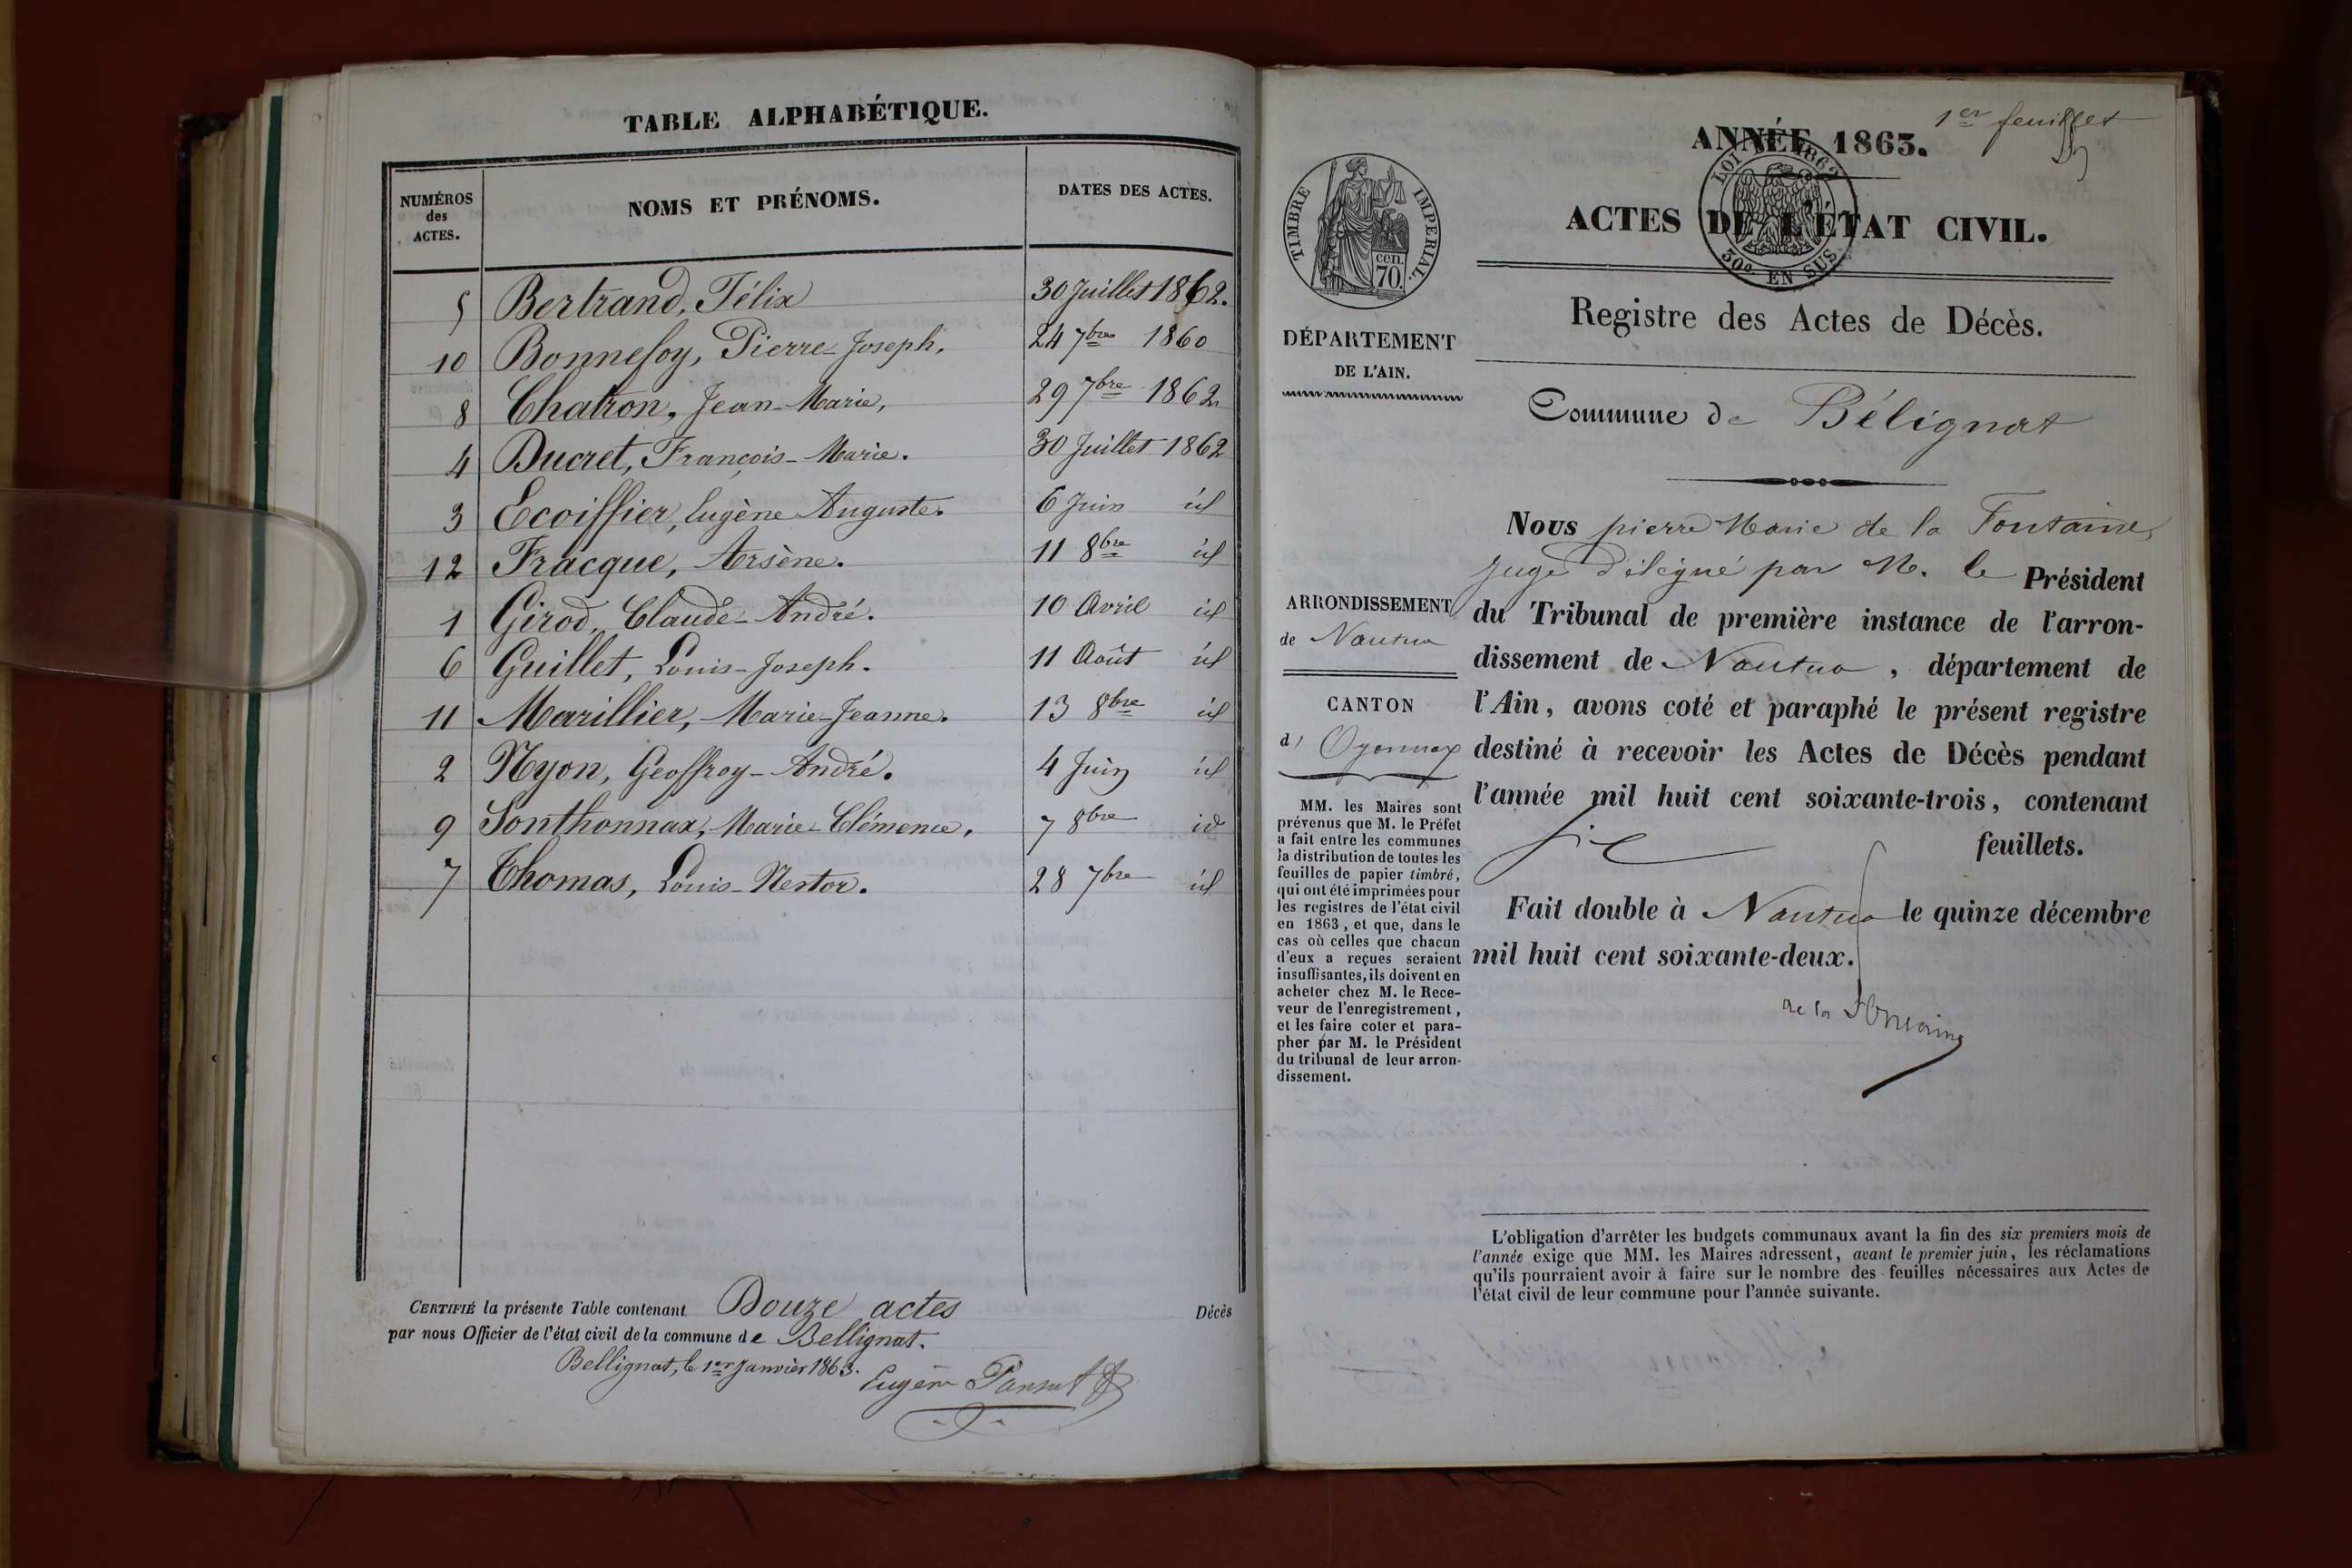 TABLE ALPHABÉTIQUE.
NUMÉROS des ACTES. NOMS ET PRÉNOMS. DATES DES ACTES.
5 Bertrand, Félix 30 Juillet 1862.
10 Bonnefoy, Pierre-Joseph. 24 7bre 1860
8 Chatron, Jean-Marie, 29 7bre 1862
4 Ducret, François-Marie. 30 Juillet 1862
3 Ecoiffier, Eugène Auguste. 6 Juin id
12 Fracque, Arsène. 11 8bre id
1 Girod, Claude-André. 10 Avril id
6 Guillet, Louis-Joseph. 11 Août id
11 Marillier, Marie-Jeanne. 13 8bre id
2 Nyon, Geoffroy-André. 4 Juin id
9 Sonthonnax, Marie-Clémence, 7 8bre id
7 Thomas, Louis-Nestor. 28 7bre id
CERTIFIÉ la présente Table contenant Douze actes Décès
par nous Officier de l'état civil de la commune de Bellignat.
Bellignat, le 1er Janvier 1863.
Eugène
1er feuillet
ANNÉE 1863.
LOI DE 1862
50c EN SUS
TIMBRE IMPÉRIAL.
cen. 70.
ACTES DE L'ÉTAT CIVIL.
Registre des Actes de Décès.
DÉPARTEMENT
DE L'AIN.
Commune de Bélignat
ARRONDISSEMENT
de Nantua
CANTON
d' Oyonnax
MM. les Maires sont
prévenus que M. le Préfet
a fait entre les communes
la distribution de toutes les
feuilles de papier timbré,
qui ont été imprimées pour
les registres de l'état civil
en 1863, et que, dans le
cas où celles que chacun
d'eux a reçues seraient
insuffisantes, ils doivent en
acheter chez M. le Rece-
veur de l'enregistrement,
et les faire coter et para-
pher par M. le Président
du tribunal de leur arron-
dissement.
Nous pierre Marie de la Fontaine,
Juge délégué par M. le Président
du Tribunal de première instance de l'arron-
dissement de Nantua, département de
l'Ain, avons coté et paraphé le présent registre
destiné à recevoir les Actes de Décès pendant
l'année mil huit cent soixante-trois, contenant
six feuillets.
Fait double à Nantua le quinze décembre
mil huit cent soixante-deux.
de la Fontaine
L'obligation d'arrêter les budgets communaux avant la fin des six premiers mois de
l'année exige que MM. les Maires adressent, avant le premier juin, les réclamations
qu'ils pourraient avoir à faire sur le nombre des feuilles nécessaires aux Actes de
l'état civil de leur commune pour l'année suivante.